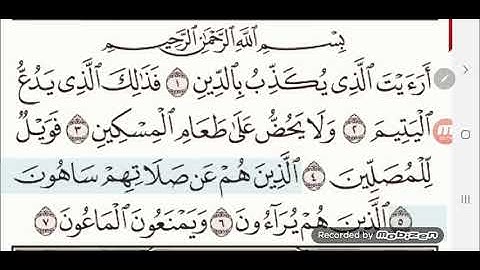 بِسْمِ اللَّهِ الرَّحْمَٰنِ الرَّحِيمِ
أَرَءَيْتَ الَّذِي يُكَذِّبُ بِالدِّينِ ١ فَذَٰلِكَ الَّذِي يَدُعُّ
الْيَتِيمَ ٢ وَلَا يَحُضُّ عَلَىٰ طَعَامِ الْمِسْكِينِ ٣ فَوَيْلٌ
لِّلْمُصَلِّينَ ٤ الَّذِينَ هُمْ عَن صَلَاتِهِمْ سَاهُونَ
٥ الَّذِينَ هُمْ يُرَاءُونَ ٦ وَيَمْنَعُونَ الْمَاعُونَ ٧
Recorded by Mobizen